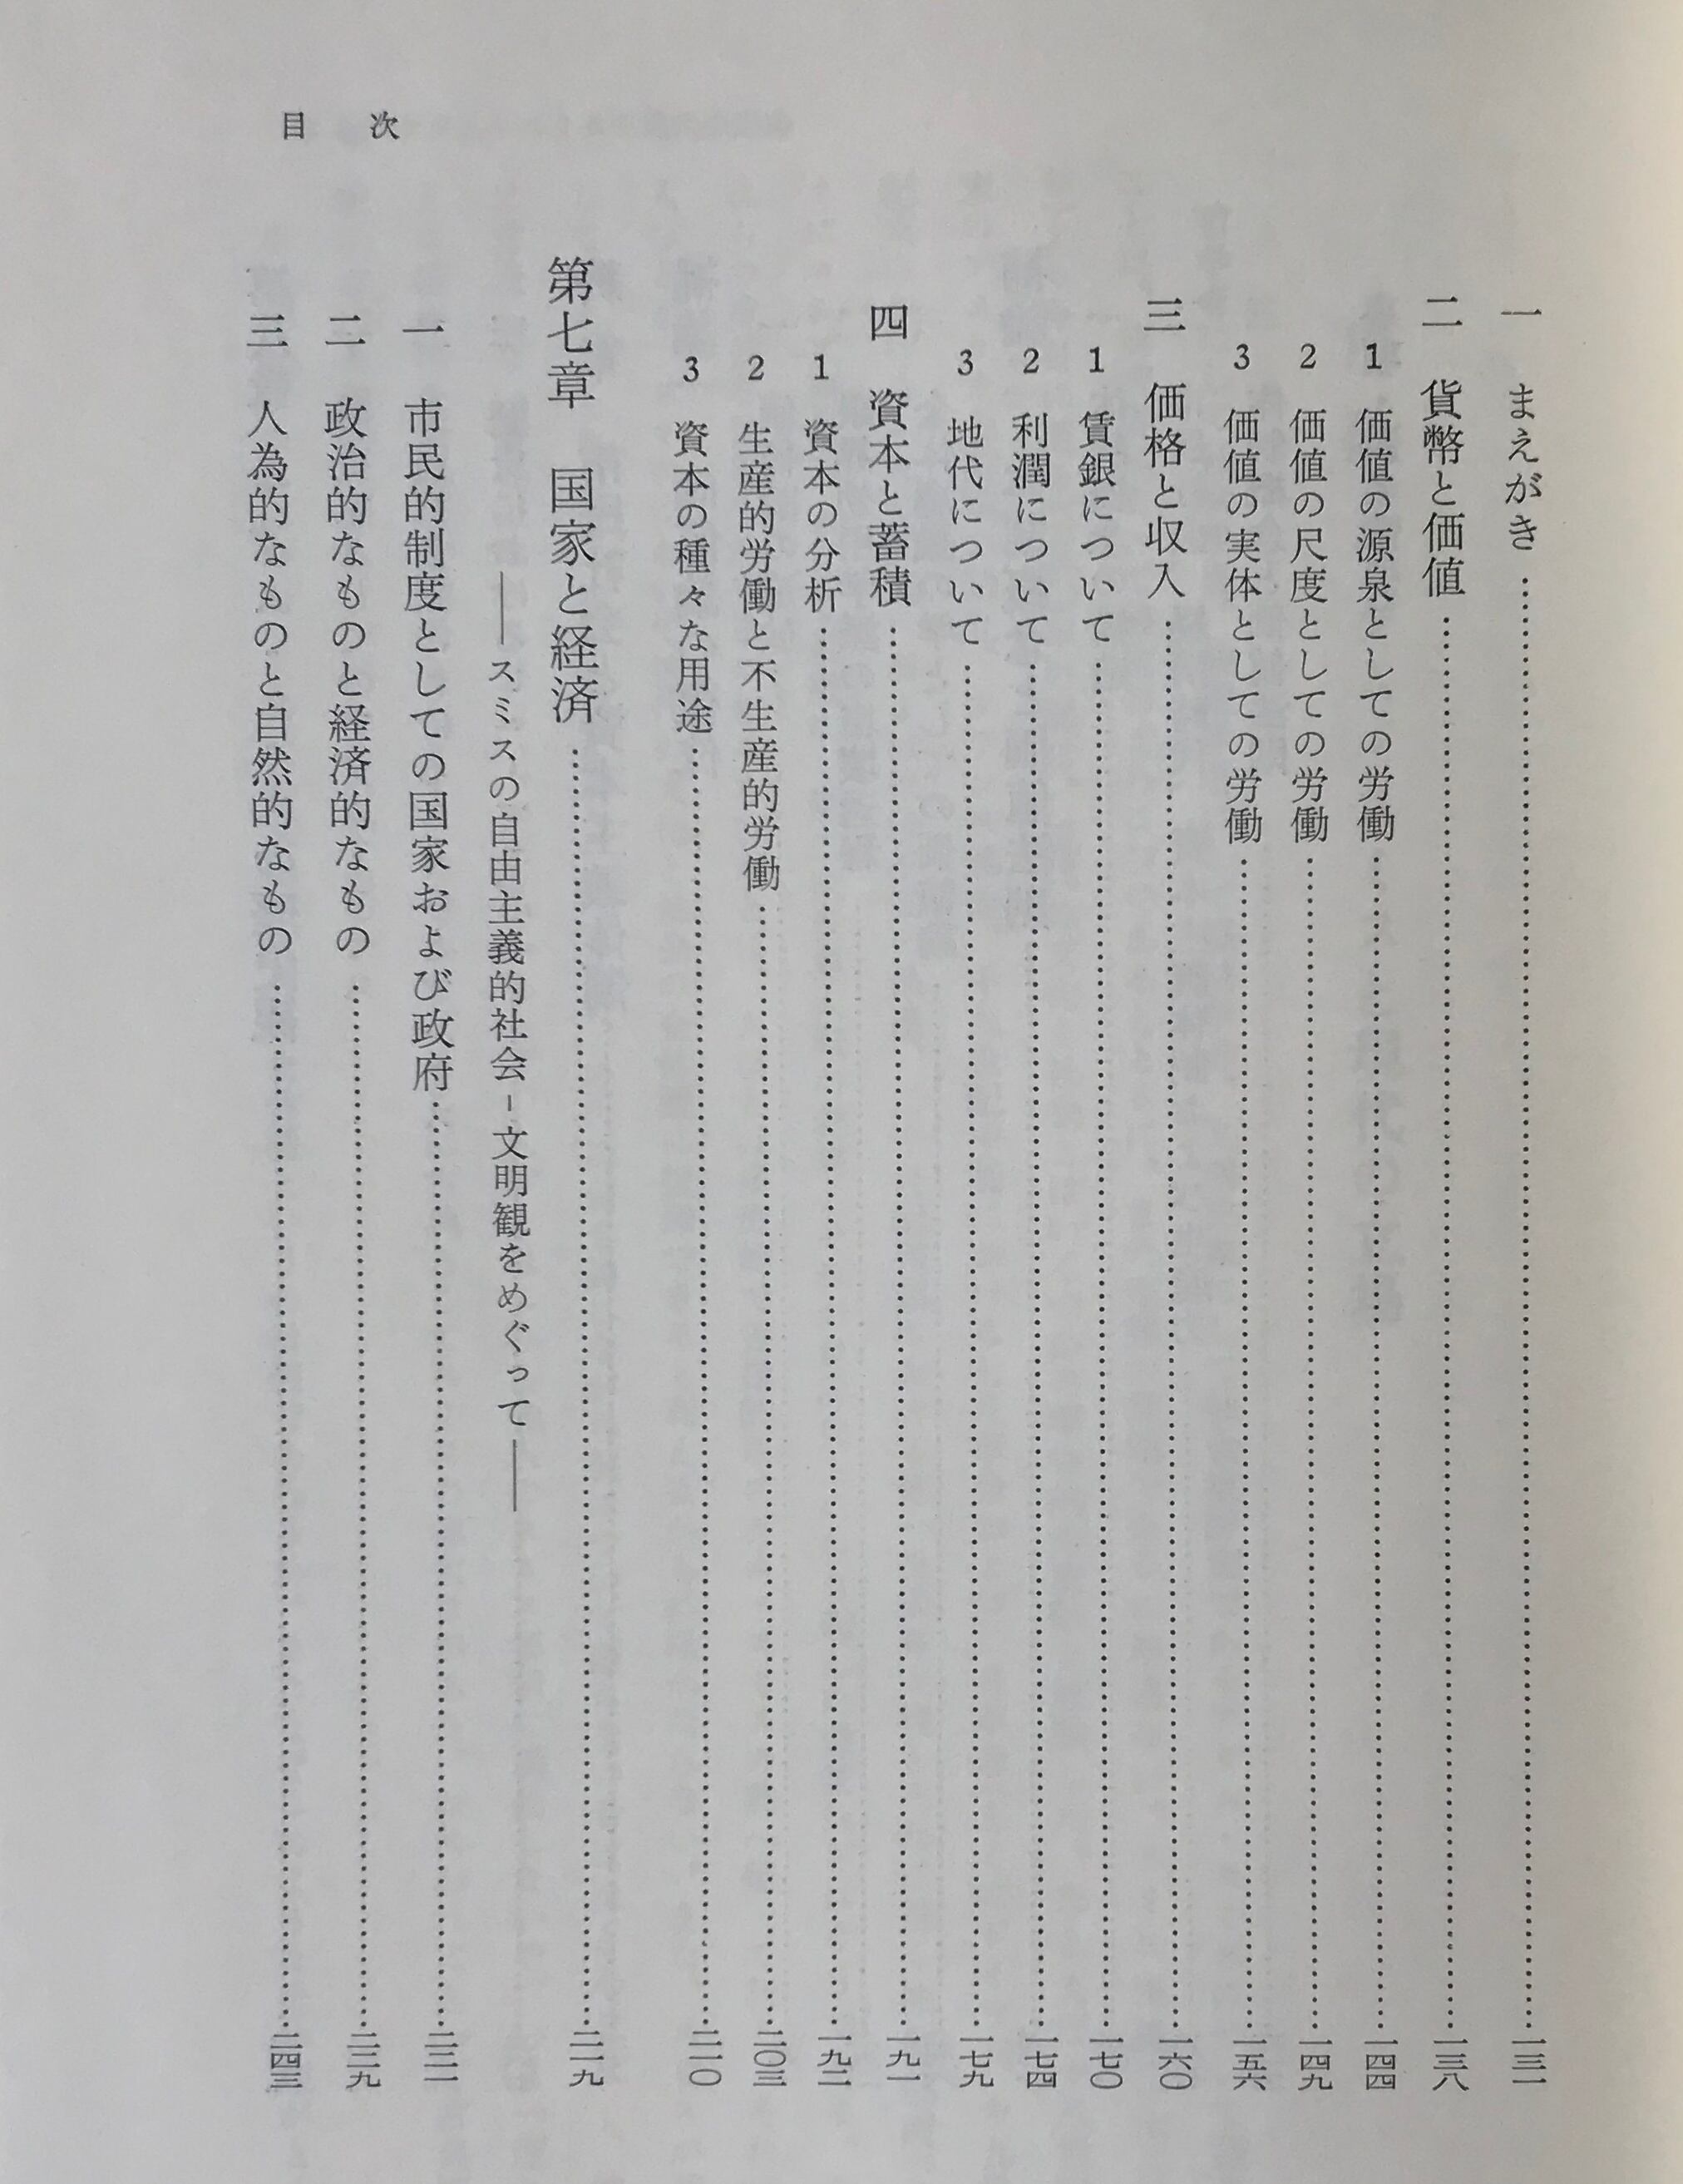 目次
一 まえがき……一三一
二 貨幣と価値……一三八
1 価値の源泉としての労働……一四四
2 価値の尺度としての労働……一四九
3 価値の実体としての労働……一五六
三 価格と収入……一六〇
1 賃銀について……一七〇
2 利潤について……一七四
3 地代について……一七九
四 資本と蓄積……一九一
1 資本の分析……一九二
2 生産的労働と不生産的労働……二〇三
3 資本の種々な用途……二一〇
第七章 国家と経済……二一九
――スミスの自由主義的社会-文明観をめぐって――
一 市民的制度としての国家および政府……二二一
二 政治的なものと経済的なもの……二三九
三 人為的なものと自然的なもの……二四三